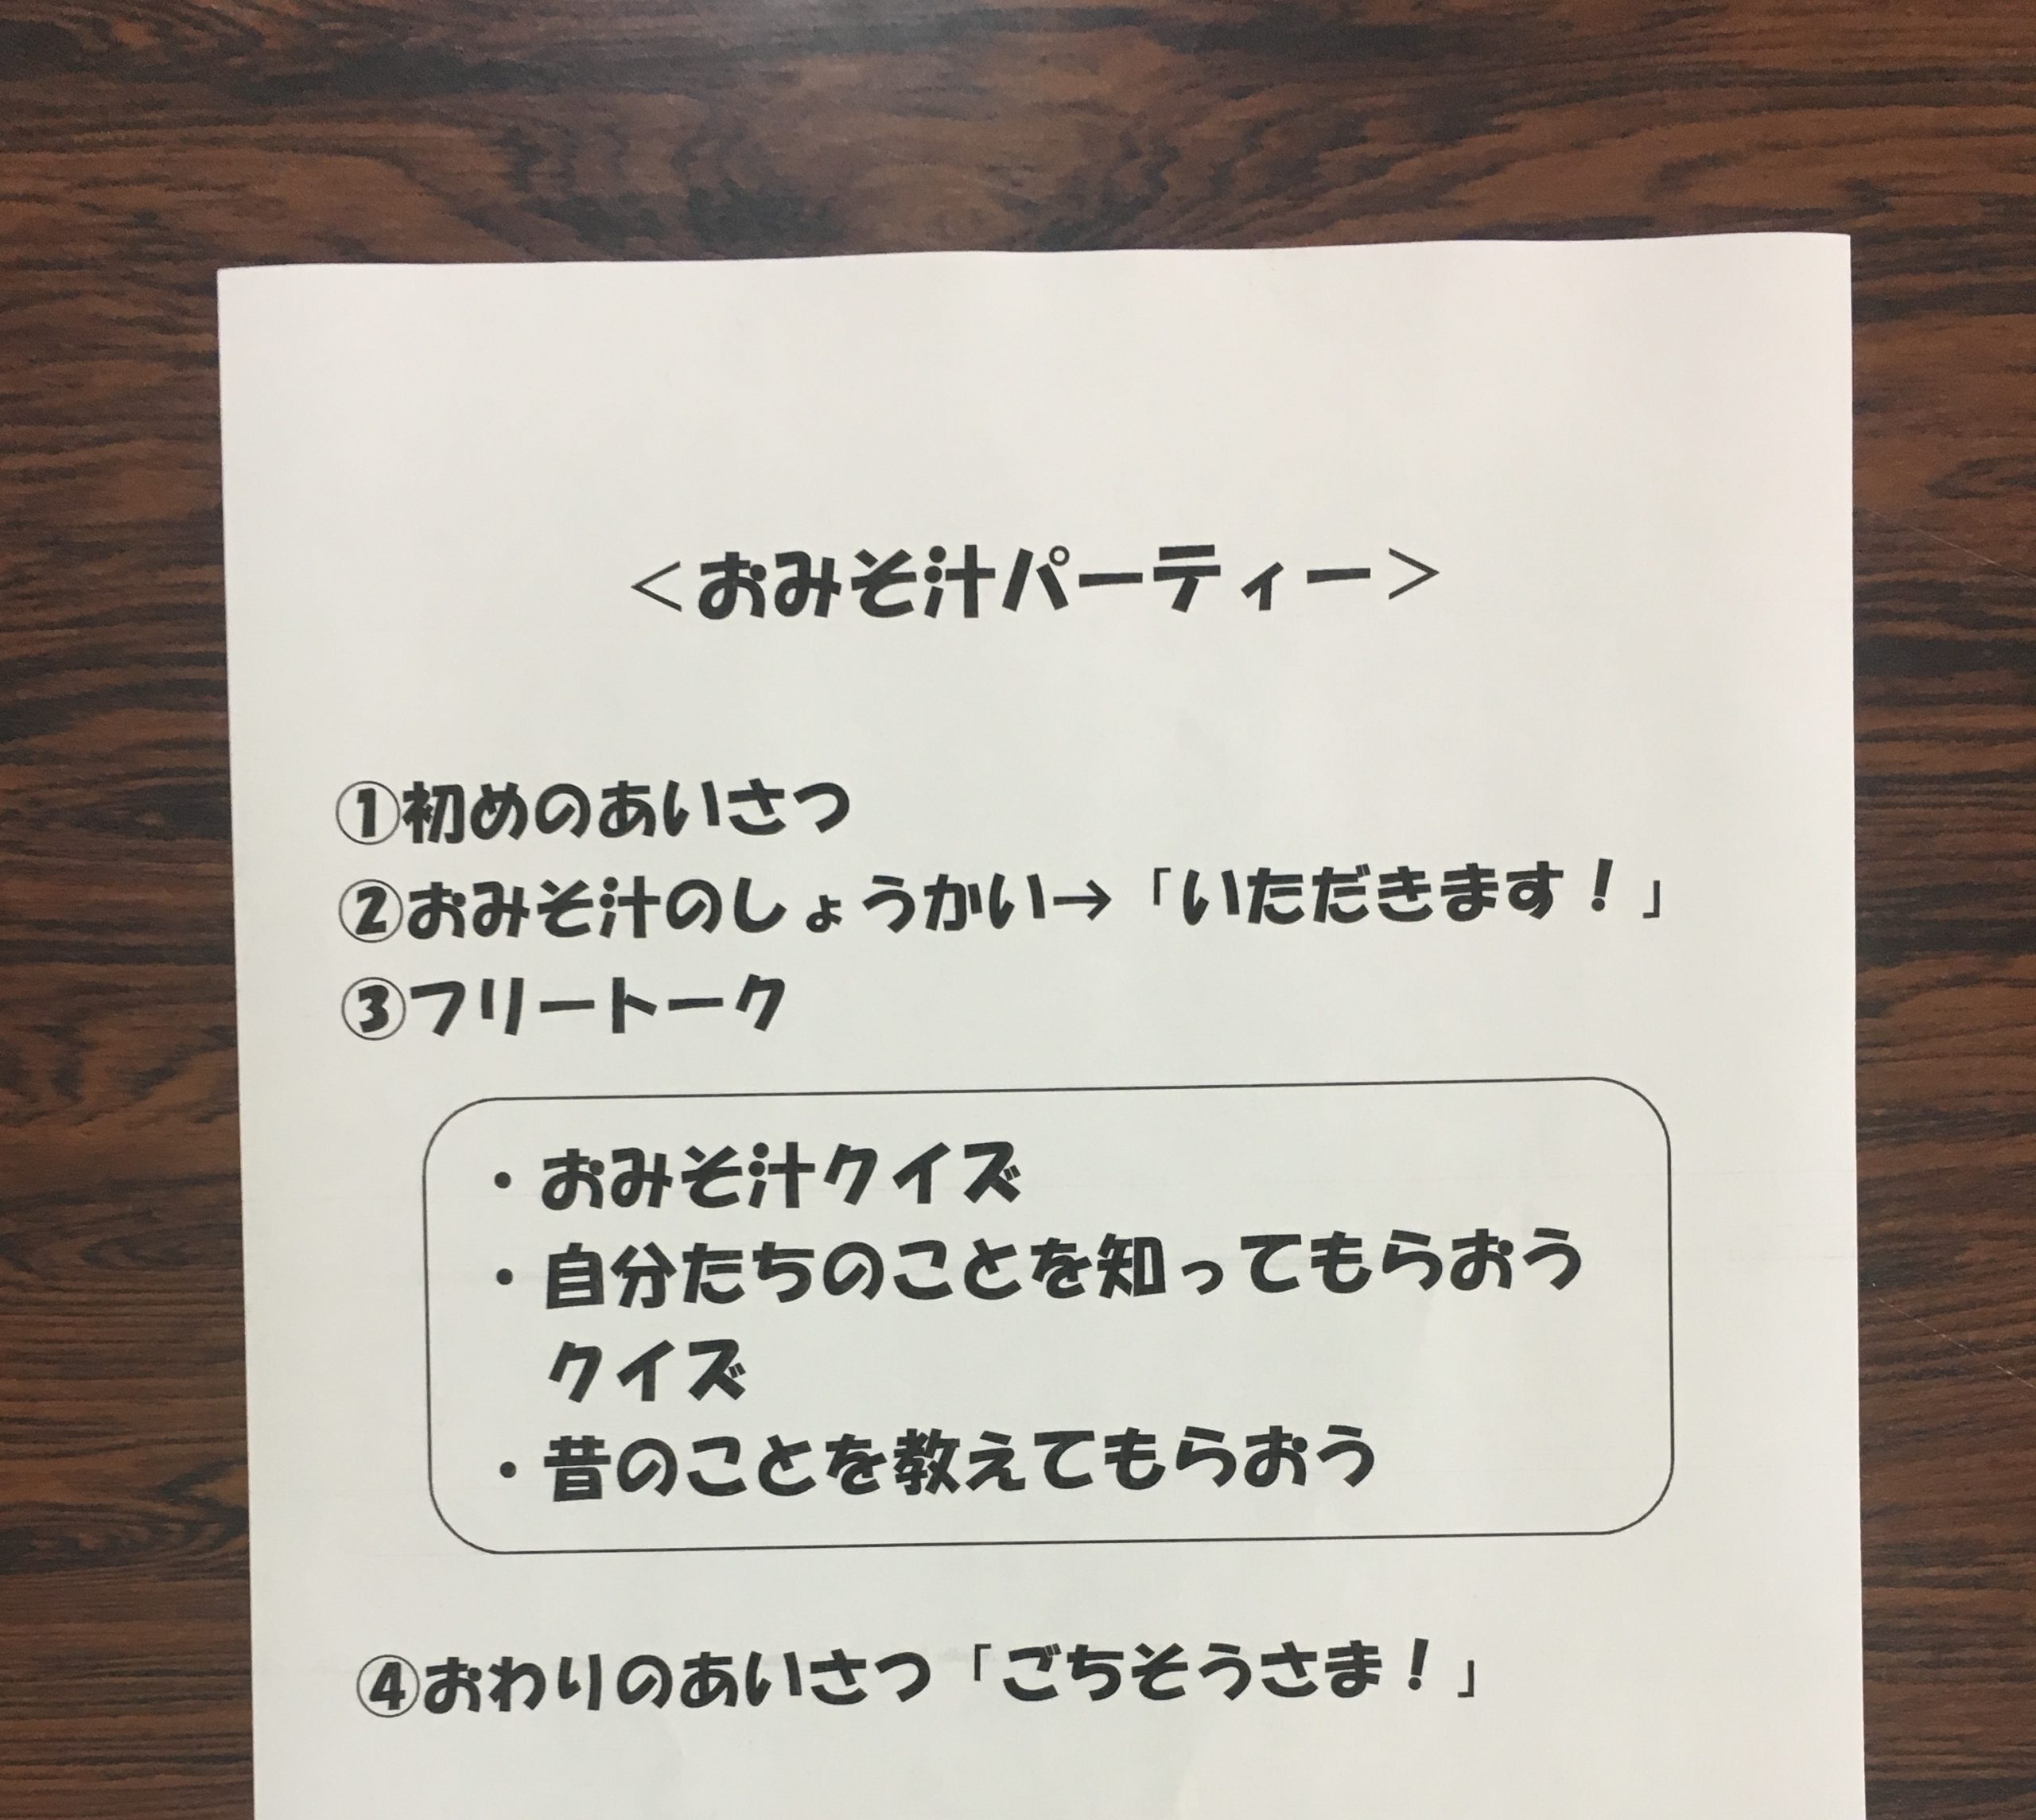 ＜おみそ汁パーティー＞
①初めのあいさつ
②おみそ汁のしょうかい→「いただきます！」
③フリートーク
・おみそ汁クイズ
・自分たちのことを知ってもらおう
クイズ
・昔のことを教えてもらおう
④おわりのあいさつ「ごちそうさま！」